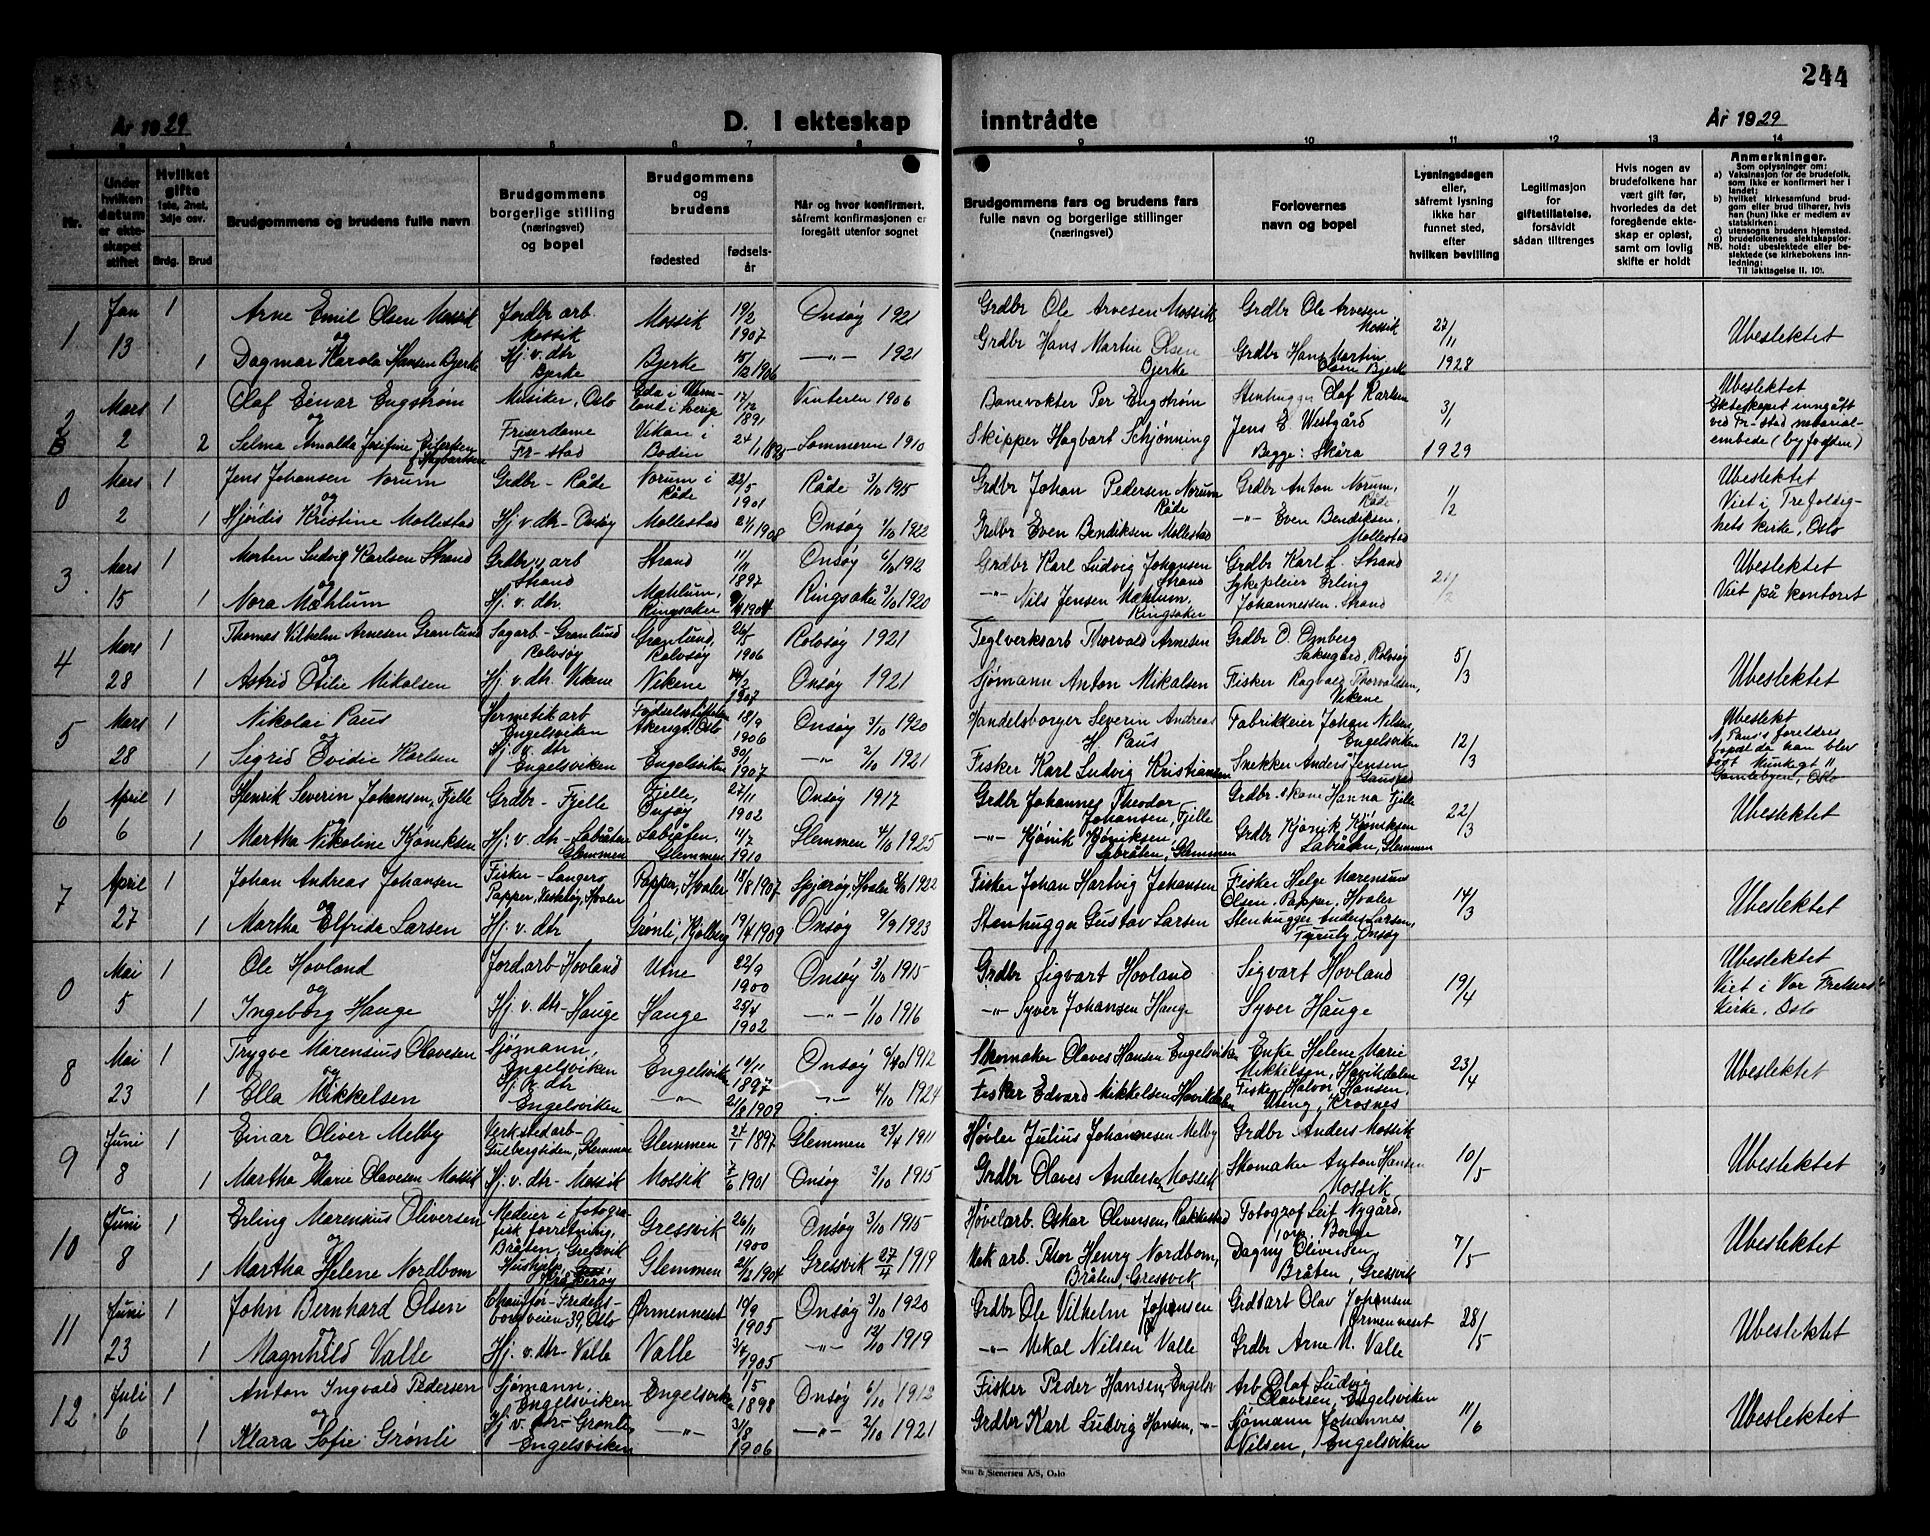 244
År 1929 D. I ekteskap inntrådte År 1929
1 2 3 4 5 6 7 8 9 10 11 12 13 14
Nr.
Under hvilken datum er ekteskapet stiftet
Hvilket gifte 1ste, 2net, 3dje osv.
Brdg. Brud
Brudgommens og brudens fulle navn
Brudgommens borgerlige stilling (næringsvei) og bopel
Brudgommens og brudens
fødested
fødselsår
Når og hvor konfirmert, såfremt konfirmasjonen er foregått utenfor sognet
Brudgommens fars og brudens fars fulle navn og borgerlige stillinger (næringsvei)
Forlovernes navn og bopel
Lysningsdagen eller, såfremt lysning ikke har funnet sted, efter hvilken bevilling
Legitimasjon for giftetillatelse, forsåvidt sådan tiltrenges
Hvis nogen av brudefolkene har vært gift før, hvorledes da det foregående ekteskap er opløst, samt om lovlig skifte er holdt
Anmerkninger.
Som oplysninger om:
a) Vaksinasjon for de brudefolk, som ikke er konfirmert her i landet;
b) hvilket kirkesamfund brudgom eller brud tilhører, hvis han (hun) ikke er medlem av statskirken;
c) utensogns brudens hjemsted.
d) brudefolkenes slektskapsforhold: ubeslektede eller beslektede (se kirkebokens innledning:
NB. Til iakttagelse II. 10).
1 Jan 13 1 Arne Emil Olsen Mossik Jordbr arb Mossik Mossik 19/2 1907 Onsøy 1921 Grdbr Ole Arvesen Mossik Grdbr Ole Arvesen Mossik 27/11 1928 Ubeslektet
og
1 Dagmar Karola Hansen Bjerke Hj. v. dtr Bjerke Bjerke 15/2 1906 —"— 1921 Grdbr Hans Martin Olsen Bjerke Grdbr Hans Martin Olsen Bjerke
2 B Mars 2 1 Olaf Einar Engstrøm Musiker, Oslo Eda i Vermland i Sverige 17/12 1891 Vinteren 1906 Banevokter Per Engstrøm Stenhugger Olaf Karlsen 3/1 1929 Ubeslektet. Ekteskapet inngått ved Fr-stad notarialembede (byfogden)
og
2 Selma Amalda Josefine Friserdame Fr-stad Vikan i Bodin 24/1 Sommeren 1910 Skipper Hagbart Schjønning Jens E. Westgård Begge: Skåra
0 Mars 2 1 Jens Johansen Norum Grdbr - Råde Norum i Råde 22/5 1901 Råde 3/10 1915 Grdbr Johan Pedersen Norum Råde Grdbr Anton Norum, Råde 1/2 Ubeslektet Viet i Trefoldighets kirke, Oslo
og
1 Hjørdis Kristine Mollestad Hj. v dtr - Onsøy Mollestad 21/1 1908 Onsøy 1/10 1922 Grdbr Even Bendiksen Mollestad —"— Even Bendiksen, Mollestad
3 Mars 15 1 Morten Ludvig Karlsen Strand Grdbr. v arb Strand Strand 11/11 1897 Onsøy 6/10 1912 Grdbr Karl Ludvig Johansen Strand Grdbr Karl L. Strand 21/2 Ubeslektet Viet på kontoret
og
1 Nora Mæhlum Hj. v. dtr. Mæhlum, Ringsaker 1904 Ringsaker 3/10 1920 —"— Nils Jensen Mæhlum, Ringsaker Sykepleier Erling Johannessen Strand
4 Mars 28 1 Thomas Vilhelm Arnesen Granlund Sagarb - Granlund Rolvsøy Granlund, Rolvsøy 26/5 1906 Rolvsøy 1921 Teglverksarb Thorvald Arnesen Grdbr O. Omberg Saksegård, Rolvsøy 5/3 Ubeslektet
og
1 Astrid Otilie Mikalsen Hj. v. dtr. Vikene Vikene 14/2 1907 Onsøy 1921 Sjømann Anton Mikalsen Fisker Ragvald Thorvaldsen, Vikene
5 Mars 28 1 Nikolai Paus Hermetik arb Engelsviken Akersgt. Oslo 18/9 1906 Onsøy 3/10 1920 Handelsborger Severin Andreas H. Paus Fabrikkeier Johan Nilsen, Engelsviken 12/3 Ubeslekt N. Paus's foreldres bopel da han blev født Munkegt 11 Gamlebyen, Oslo
1 Sigrid Ovidie Karlsen Hj. v. dtr Engelsviken Engelsviken 30/1 1907 —"— 2/10 1921 Fisker Karl Ludvig Kristiansen Snekker Anders Jensen
6 April 6 1 Henrik Severin Johansen, Fjelle Grdbr - Fjelle Fjelle, Onsøy 27/11 1902 Onsøy 1917 Grdbr Johannes Theodor Johansen, Fjelle Grdbr.skone Hanna Fjelle 22/3 Ubeslektet
og
1 Martha Nikoline Kjøniksen Hj. v. dtr - Labråten Glemmen Labråten, Glemmen 11/7 1910 Glemmen 4/10 1925 —"— Kjønik Kjøniksen, Labråten, Glemmen Grdbr Kjønik Kjøniksen Labråten, Glemmen
7 April 27 1 Johan Andreas Johansen Fisker - Papper, Vesterøy, Hvaler Papper, Hvaler 18/8 1907 Spjærøy, Hvaler 1922 Fisker Johan Hartvig Johansen Fisker Helge Marensius Olsen, Papper, Hvaler 14/3 Ubeslektet
og
1 Martha Elfrida Larsen Hj. v. dtr Grønli, Kjølberg 19/4 1909 Onsøy 9/9 1923 Stenhugger Gustav Larsen Stenhugger Anders Larsen, Onsøy
0 Mai 5 1 Ole Hovland Jordarb - Hovland Utne 22/9 1900 Onsøy 3/10 1915 Grdbr Sigvart Hovland Sigvart Hovland 19/4 Ubeslektet Viet i Vor Frelsers kirke, Oslo
og
1 Ingeborg Hauge Hj. v. dtr - Hauge Hauge 25/4 1902 —"— 1/10 1916 —"— Syver Johansen Hauge Syver Hauge
8 Mai 23 1 Trygve Marensius Olavesen Sjømann, Engelsviken Engelsviken 1897 Onsøy 6/10 1912 Skomaker Olaves Hansen Engelsviken Enke Helene Marie Mikkelsen, Haviddalen 23/4 Ubeslektet
og
1 Ella Mikkelsen Hj. v. dtr Engelsviken —"— 21/8 1909 —"— 4/10 1924 Fisker Edvard Mikkelsen Fisker Halvor Hansen, Uteng, Krosnes
9 Juni 8 1 Einar Oliver Melby Verkstedarb - Gulbergsiden, Glemmen Glemmen 27/1 1897 Glemmen 23/4 1911 Høvler Julius Johannesen Melby Grdbr Anders Mossik 10/5 Ubeslektet
og
1 Martha Marie Olavesen Mossik Hj. v. dtr - Mossik Mossik 7/6 1901 Onsøy 3/10 1915 Grdbr Olaves Andersen Mossik Skomaker Anton Hansen Mossik
10 Juni 8 1 Erling Marensius Oliversen Medeier i fotografisk forretning, Bråten, Gressvik Gressvik 26/11 1900 Onsøy 3/10 1915 Høvelarb. Oskar Oliversen, Rakkestad Fotograf Leif Nygård, Torp, Borge 7/5 Ubeslektet
og
1 Martha Helene Nordbom Hushjelp, Glemmen 21/2 1904 Gressvik 27/4 1919 Mek arb. Thor Henry Nordbom, Bråten, Gressvik Dagny Oliversen Bråten, Gressvik
11 Juni 23 1 John Bernhard Olsen Chauffør - Fredensborgveien 39, Oslo Ørmenneset 19/9 1905 Onsøy 3/10 1920 Grdbr Ole Vilhelm Johansen Grdbart Olav Johansen Ørmenneset 28/5 Ubeslektet
og
1 Magnhild Valle Hj. v. dtr - Valle Valle 3/4 1905 —"— 12/10 1919 —"— Mekal Nilsen Valle Grdbr Arne M. Valle
12 Juli 6 1 Anton Ingvald Pedersen Sjømann, Engelsviken Engelsviken 1/5 1898 Onsøy 6/10 1912 Fisker Peder Hansen, Engelsv Arb Olaf Ludvig Olavesen, Engelsviken 11/6 Ubeslektet
og
1 Klara Sofie Grønli Hj v. dtr - Grønli, Engelsviken —"— 3/8 1906 —"— 2/10 1921 Grdbr Karl Ludvig Hansen, —"— Sjømann Johannes Nilsen, Engelsviken
Sem & Stenersen A/S, Oslo